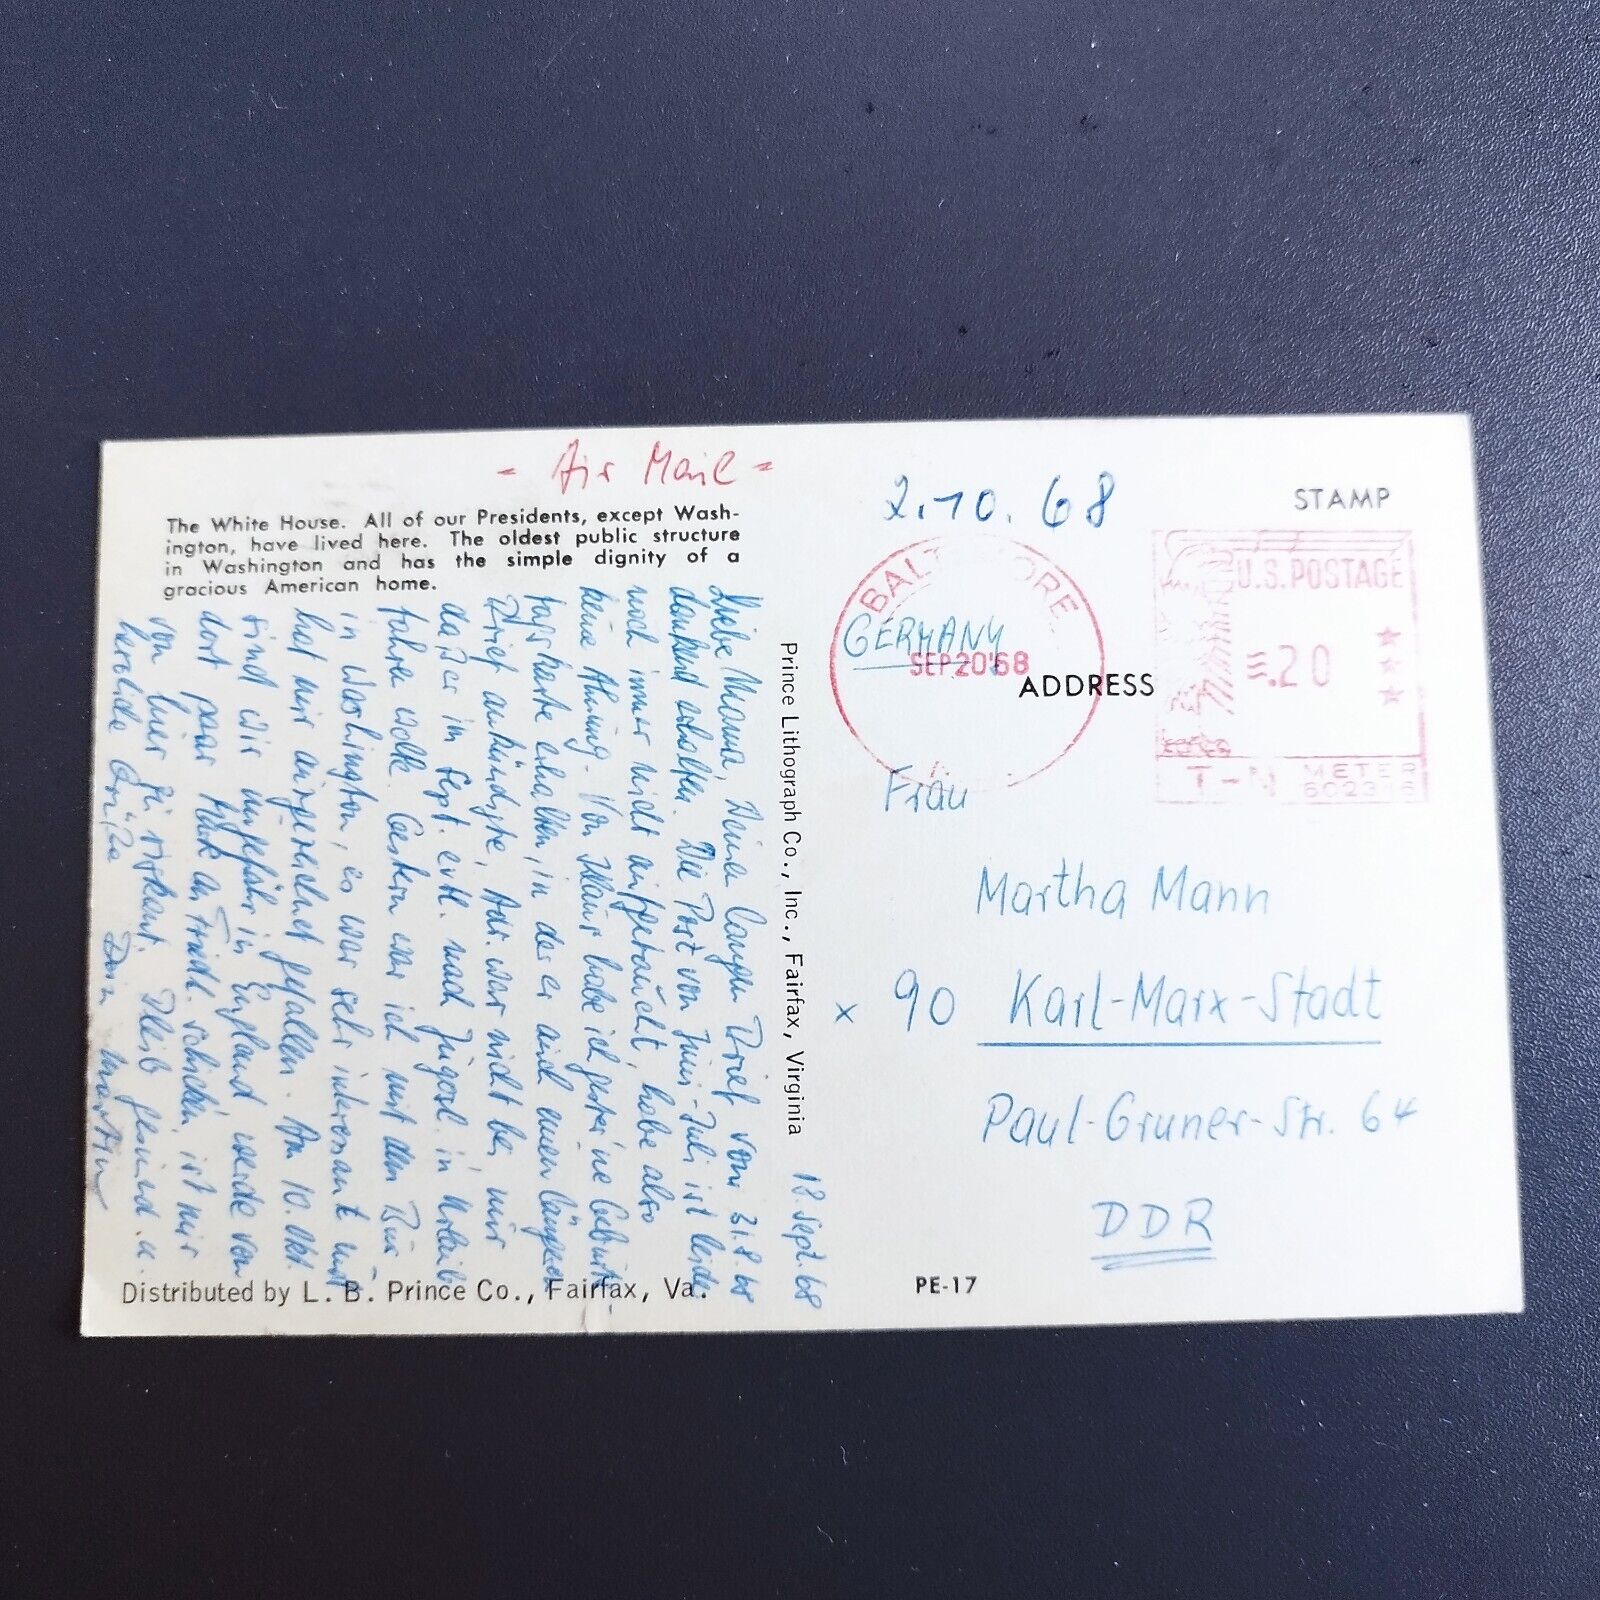 - Air Mail -
The White House. All of our Presidents, except Wash-
ington, have lived here. The oldest public structure
in Washington and has the simple dignity of a
gracious American home.
18. Sept. 68
Liebe Mama, Deinen langen Brief vom 31.8.68
dankend erhalten. Die Post von Juni-Juli ist leider
noch immer nicht aufgetaucht, habe also
keine Ahnung. Von habe ich gestern eine Geburts-
tagskarte erhalten, in der er auch einen längeren
Brief ankündigte, Adr. war nicht bei, mir
daß er in Sept. evtl. nach Jugosl. in Urlaub
fahren wollte. Gestern war ich mit dem Bus
in Washington, es war sehr interessant und
hat mir ausgezeichnet gefallen. Am 10. Okt.
sind wir ungefähr in England werde von
dort paar Mark an Friedl. schicken, ist mir
von hier zu riskant. Bleib gesund u.
herzliche Grüße Dein Martin
Distributed by L. B. Prince Co., Fairfax, Va.
Prince Lithograph Co., Inc., Fairfax, Virginia
2.10.68
STAMP
BALTIMORE
SEP 20 '68
GERMANY
U.S. POSTAGE
.20
T-N METER
602316
ADDRESS
Frau
Martha Mann
x 90 Karl-Marx-Stadt
Paul-Gruner-Str. 64
DDR
PE-17